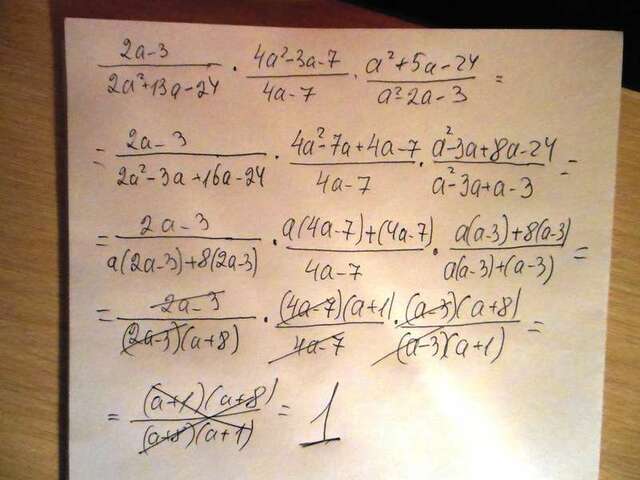 (2a-3)/(2a²+13a-24) · (4a²-3a-7)/(4a-7) · (a²+5a-24)/(a²-2a-3) =
= (2a-3)/(2a²-3a+16a-24) · (4a²-7a+4a-7)/(4a-7) · (a²-3a+8a-24)/(a²-3a+a-3) =
= (2a-3)/(a(2a-3)+8(2a-3)) · (a(4a-7)+(4a-7))/(4a-7) · (a(a-3)+8(a-3))/(a(a-3)+(a-3)) =
= (2a-3)/((2a-3)(a+8)) · ((4a-7)(a+1))/(4a-7) · ((a-3)(a+8))/((a-3)(a+1)) =
= ((a+1)(a+8))/((a+8)(a+1)) = 1